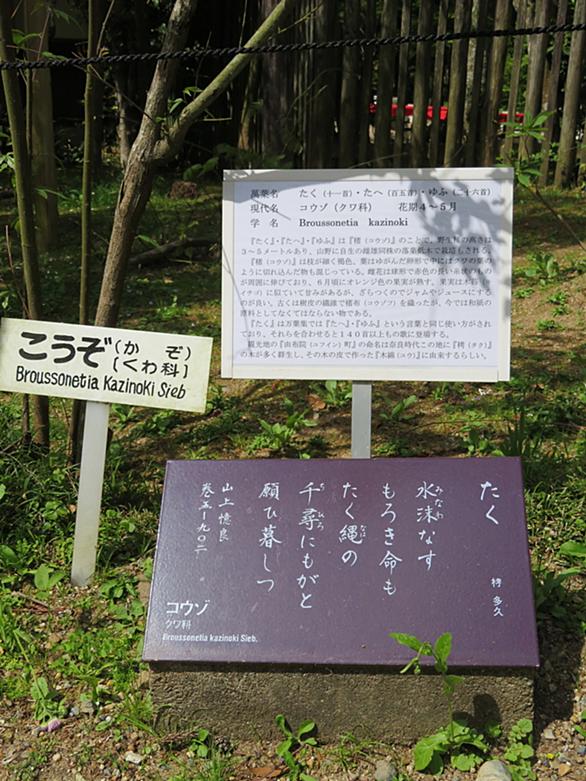 萬葉名　たく（十一首）・たへ（百五首）・ゆふ（二十六首）
現代名　コウゾ（クワ科）　花期４～５月
学　名　Broussonetia　kazinoki
『たく』・『たへ』・『ゆふ』は『楮（コウゾ）』のことで、野生種の高さは
３～５メートルあり、山野に自生の雌雄同株の落葉低木で栽培もされる。
『楮（コウゾ）』は枝が細く褐色、葉はゆがんだ卵形で中にはクワの葉の
ように切れ込んだ物も混じっている。雌花は球形で赤色の長い糸状のもの
が周囲に伸びており、６月頃にオレンジ色の果実が熟す。果実は木苺（キ
イチゴ）に似ていて甘みがあるが、ざらつくのでジャムやジュースにする
のが良い。古くは樹皮の繊維で楮布（コウゾフ）を織ったが、今では和紙の
原料としてなくてはならない物である。
『たく』は万葉集では『たへ』・『ゆふ』という言葉と同じ使い方がされ
ており、それらを合わせると１４０首以上もの歌に登場する。
観光地の『由布院（ユフイン）町』の命名は奈良時代この地に『栲（タク）』
の木が多く群生し、その木の皮で作った『木綿（ユウ）』に由来するらしい。
こうぞ（かぞ）
〔くわ科〕
Broussonetia KaziNoKi Sieb
たく
栲 多久
水沫なす
みなわ
もろき命も
たく縄の
なは
千尋にもがと
ちひろ
願ひ暮しつ
山上憶良
巻五－九〇二
コウゾ
クワ科
Broussonetia kazinoki Sieb.